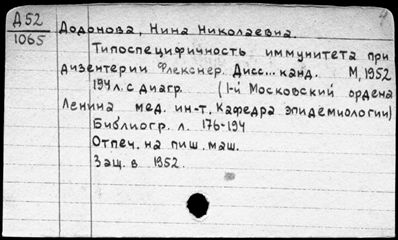 Д 52
1065
Додонова, Нина Николаевна.
Типоспецифичность иммунитета при
дизентерии Флекснер. Дисс... канд. М, 1952
194 л. с диагр. (1-й Московский ордена
Ленина мед. ин-т. Кафедра эпидемиологии)
Библиогр. л. 176-194
Отпеч. на пиш. маш.
Защ. в 1952.